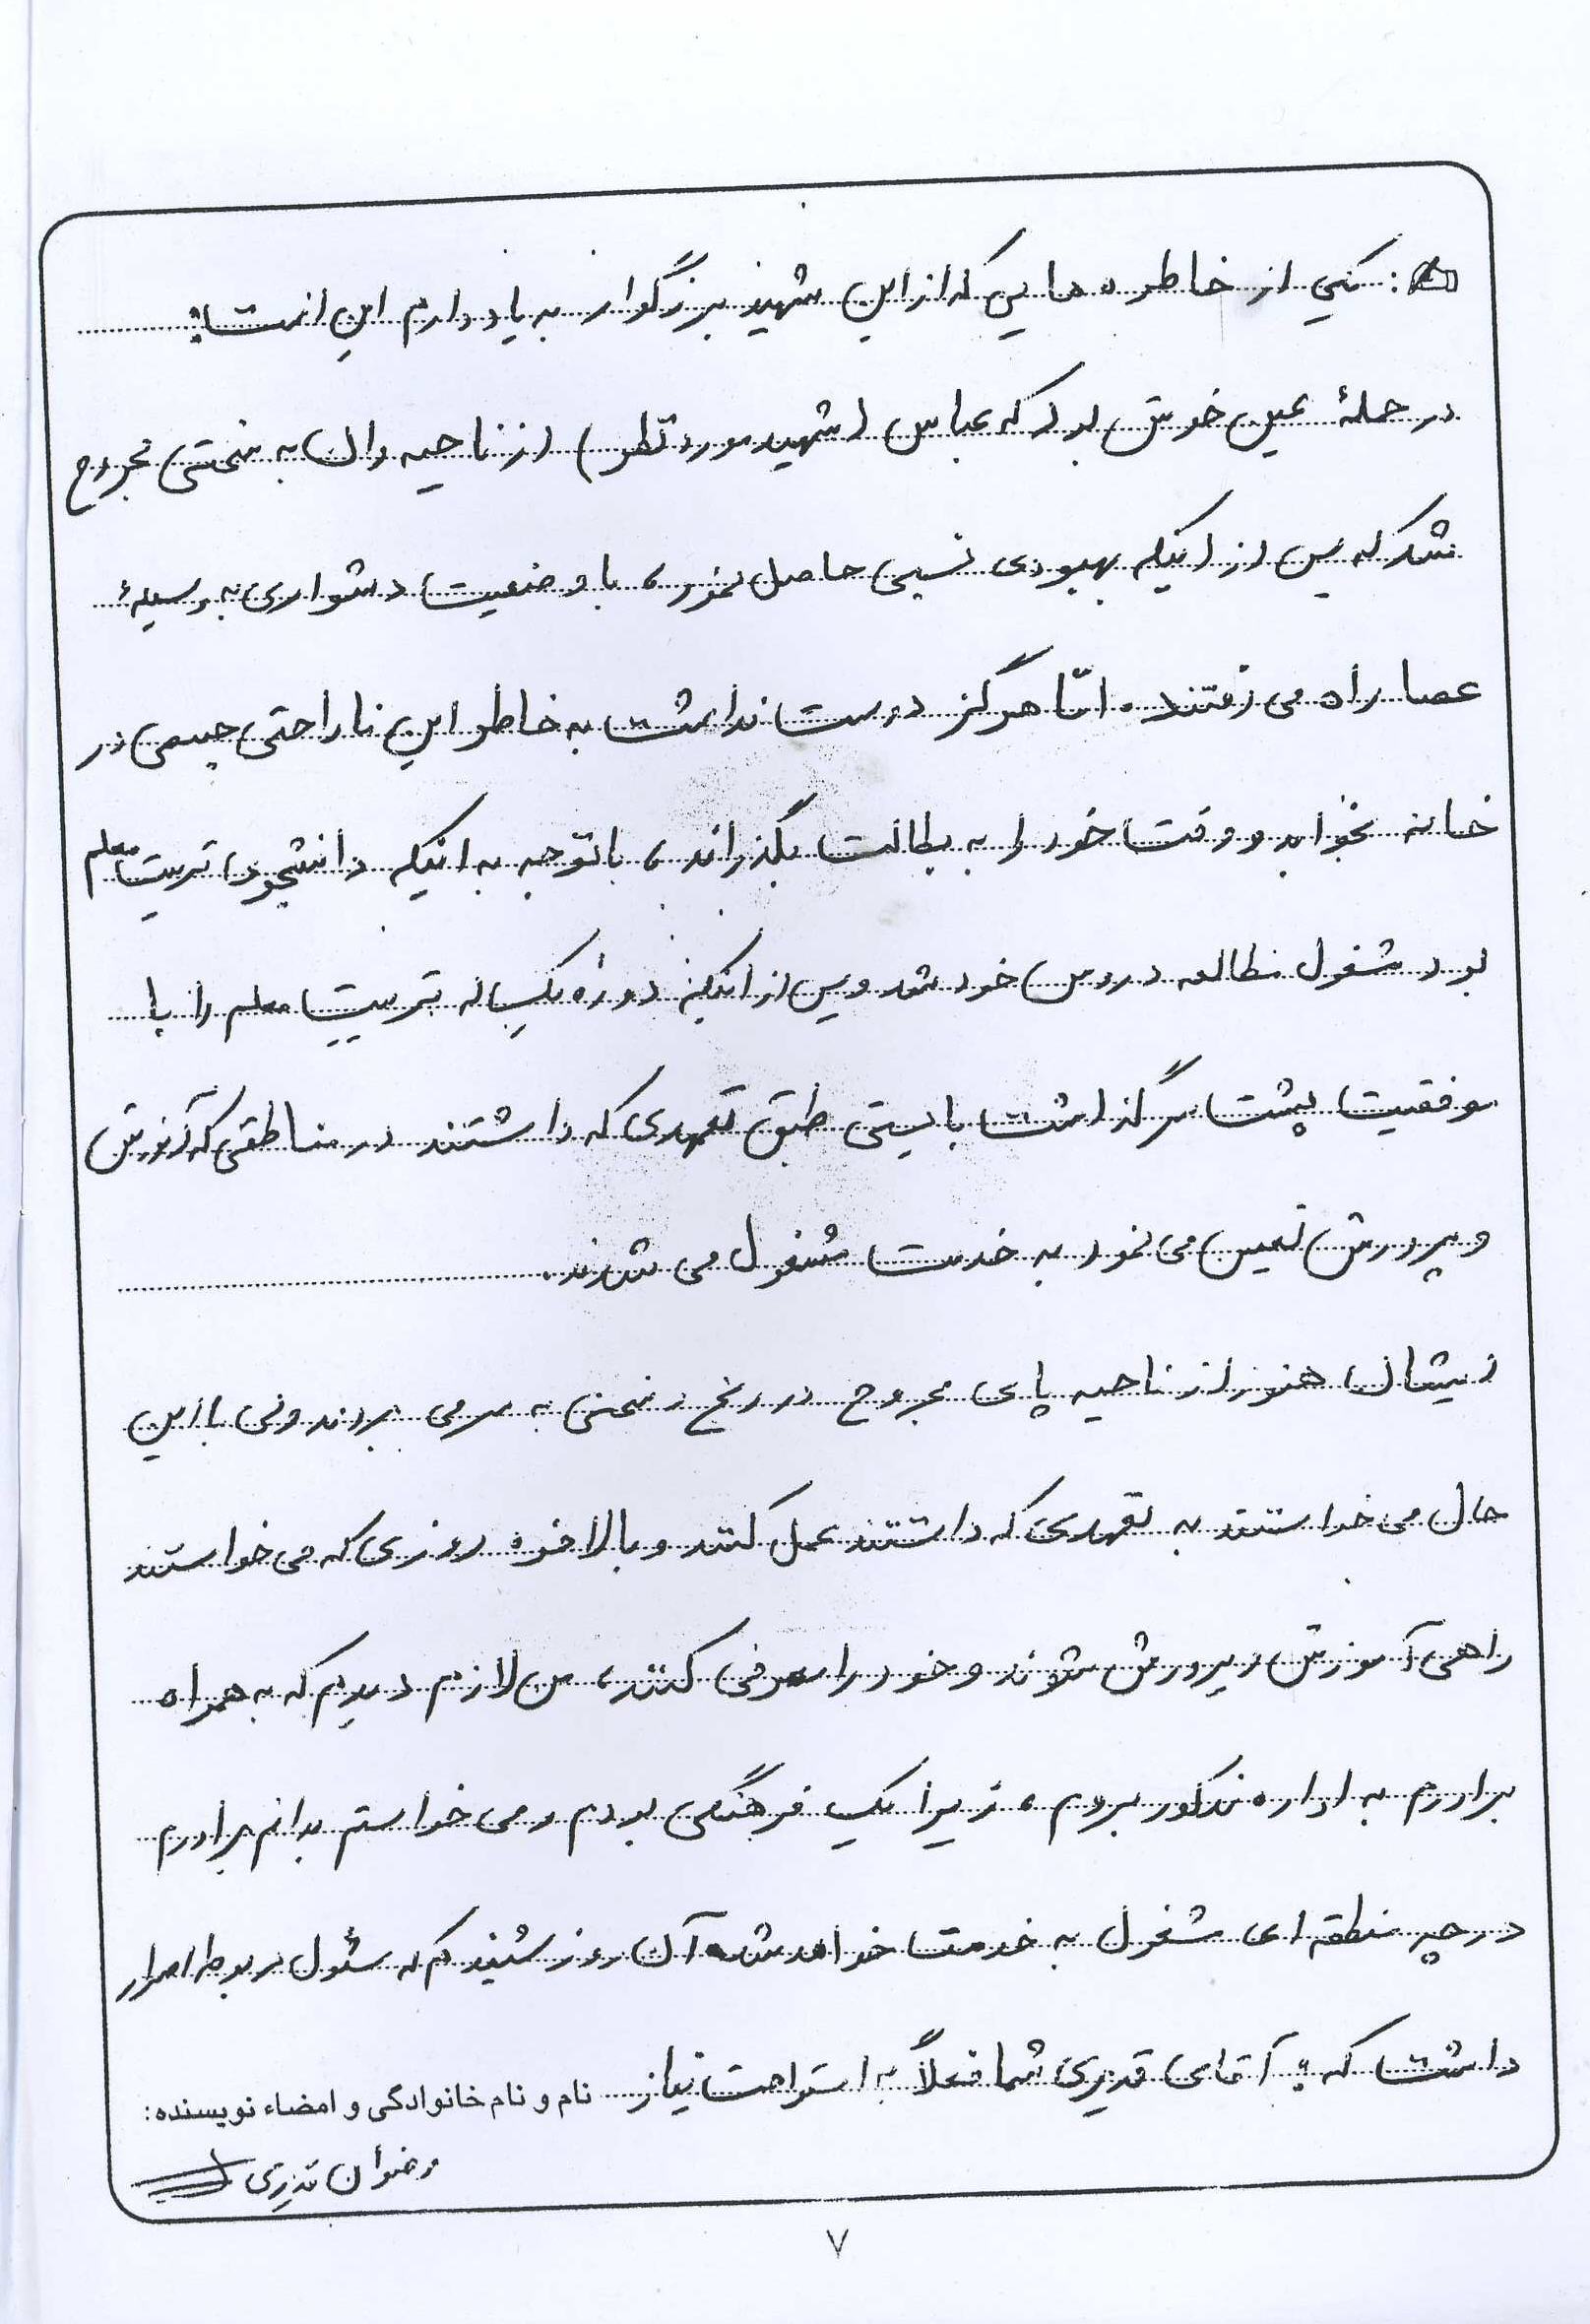 : یکی از خاطره هایی که از این شهید بزرگوار به یاد دارم این است:
در حملهٔ عین خوش بود که عباس (شهید مورد نظر) از ناحیه ران به سختی مجروح
شد که پس از اینکه بهبودی نسبی حاصل نمود، با وضعیت دشواری به وسیلهٔ
عصا راه می رفتند. امّا هرگز دوست نداشت به خاطر این ناراحتی جسمی در
خانه بخوابد و وقت خود را به بطالت بگذراند، با توجه به اینکه دانشجوی تربیت معلم
بود مشغول مطالعه دروس خود شد و پس از اینکه دورهٔ یکساله تربیت معلم را با
موفقیت پشت سر گذاشت بایستی طبق تعهدی که داشتند در مناطقی که آموزش
و پرورش تعیین می نمود به خدمت مشغول می شدند.
ایشان هنوز از ناحیه پای مجروح در رنج و سختی به سر می بردند ولی با این
حال می خواستند به تعهدی که داشتند عمل کنند و بالاخره روزی که می خواستند
راهی آموزش و پرورش شوند و خود را معرفی کنند، من لازم دیدم که به همراه
برادرم به اداره مذکور بروم، زیرا یک فرهنگی بودم و می خواستم بدانم برادرم
در چه منطقه ای مشغول به خدمت خواهد شد. آن روز شنیدم که مسئول مربوطه اصرار
داشت که: آقای قدیری شما فعلاً به استراحت نیاز
نام و نام خانوادگی و امضاء نویسنده:
رضوان قدیری
۷